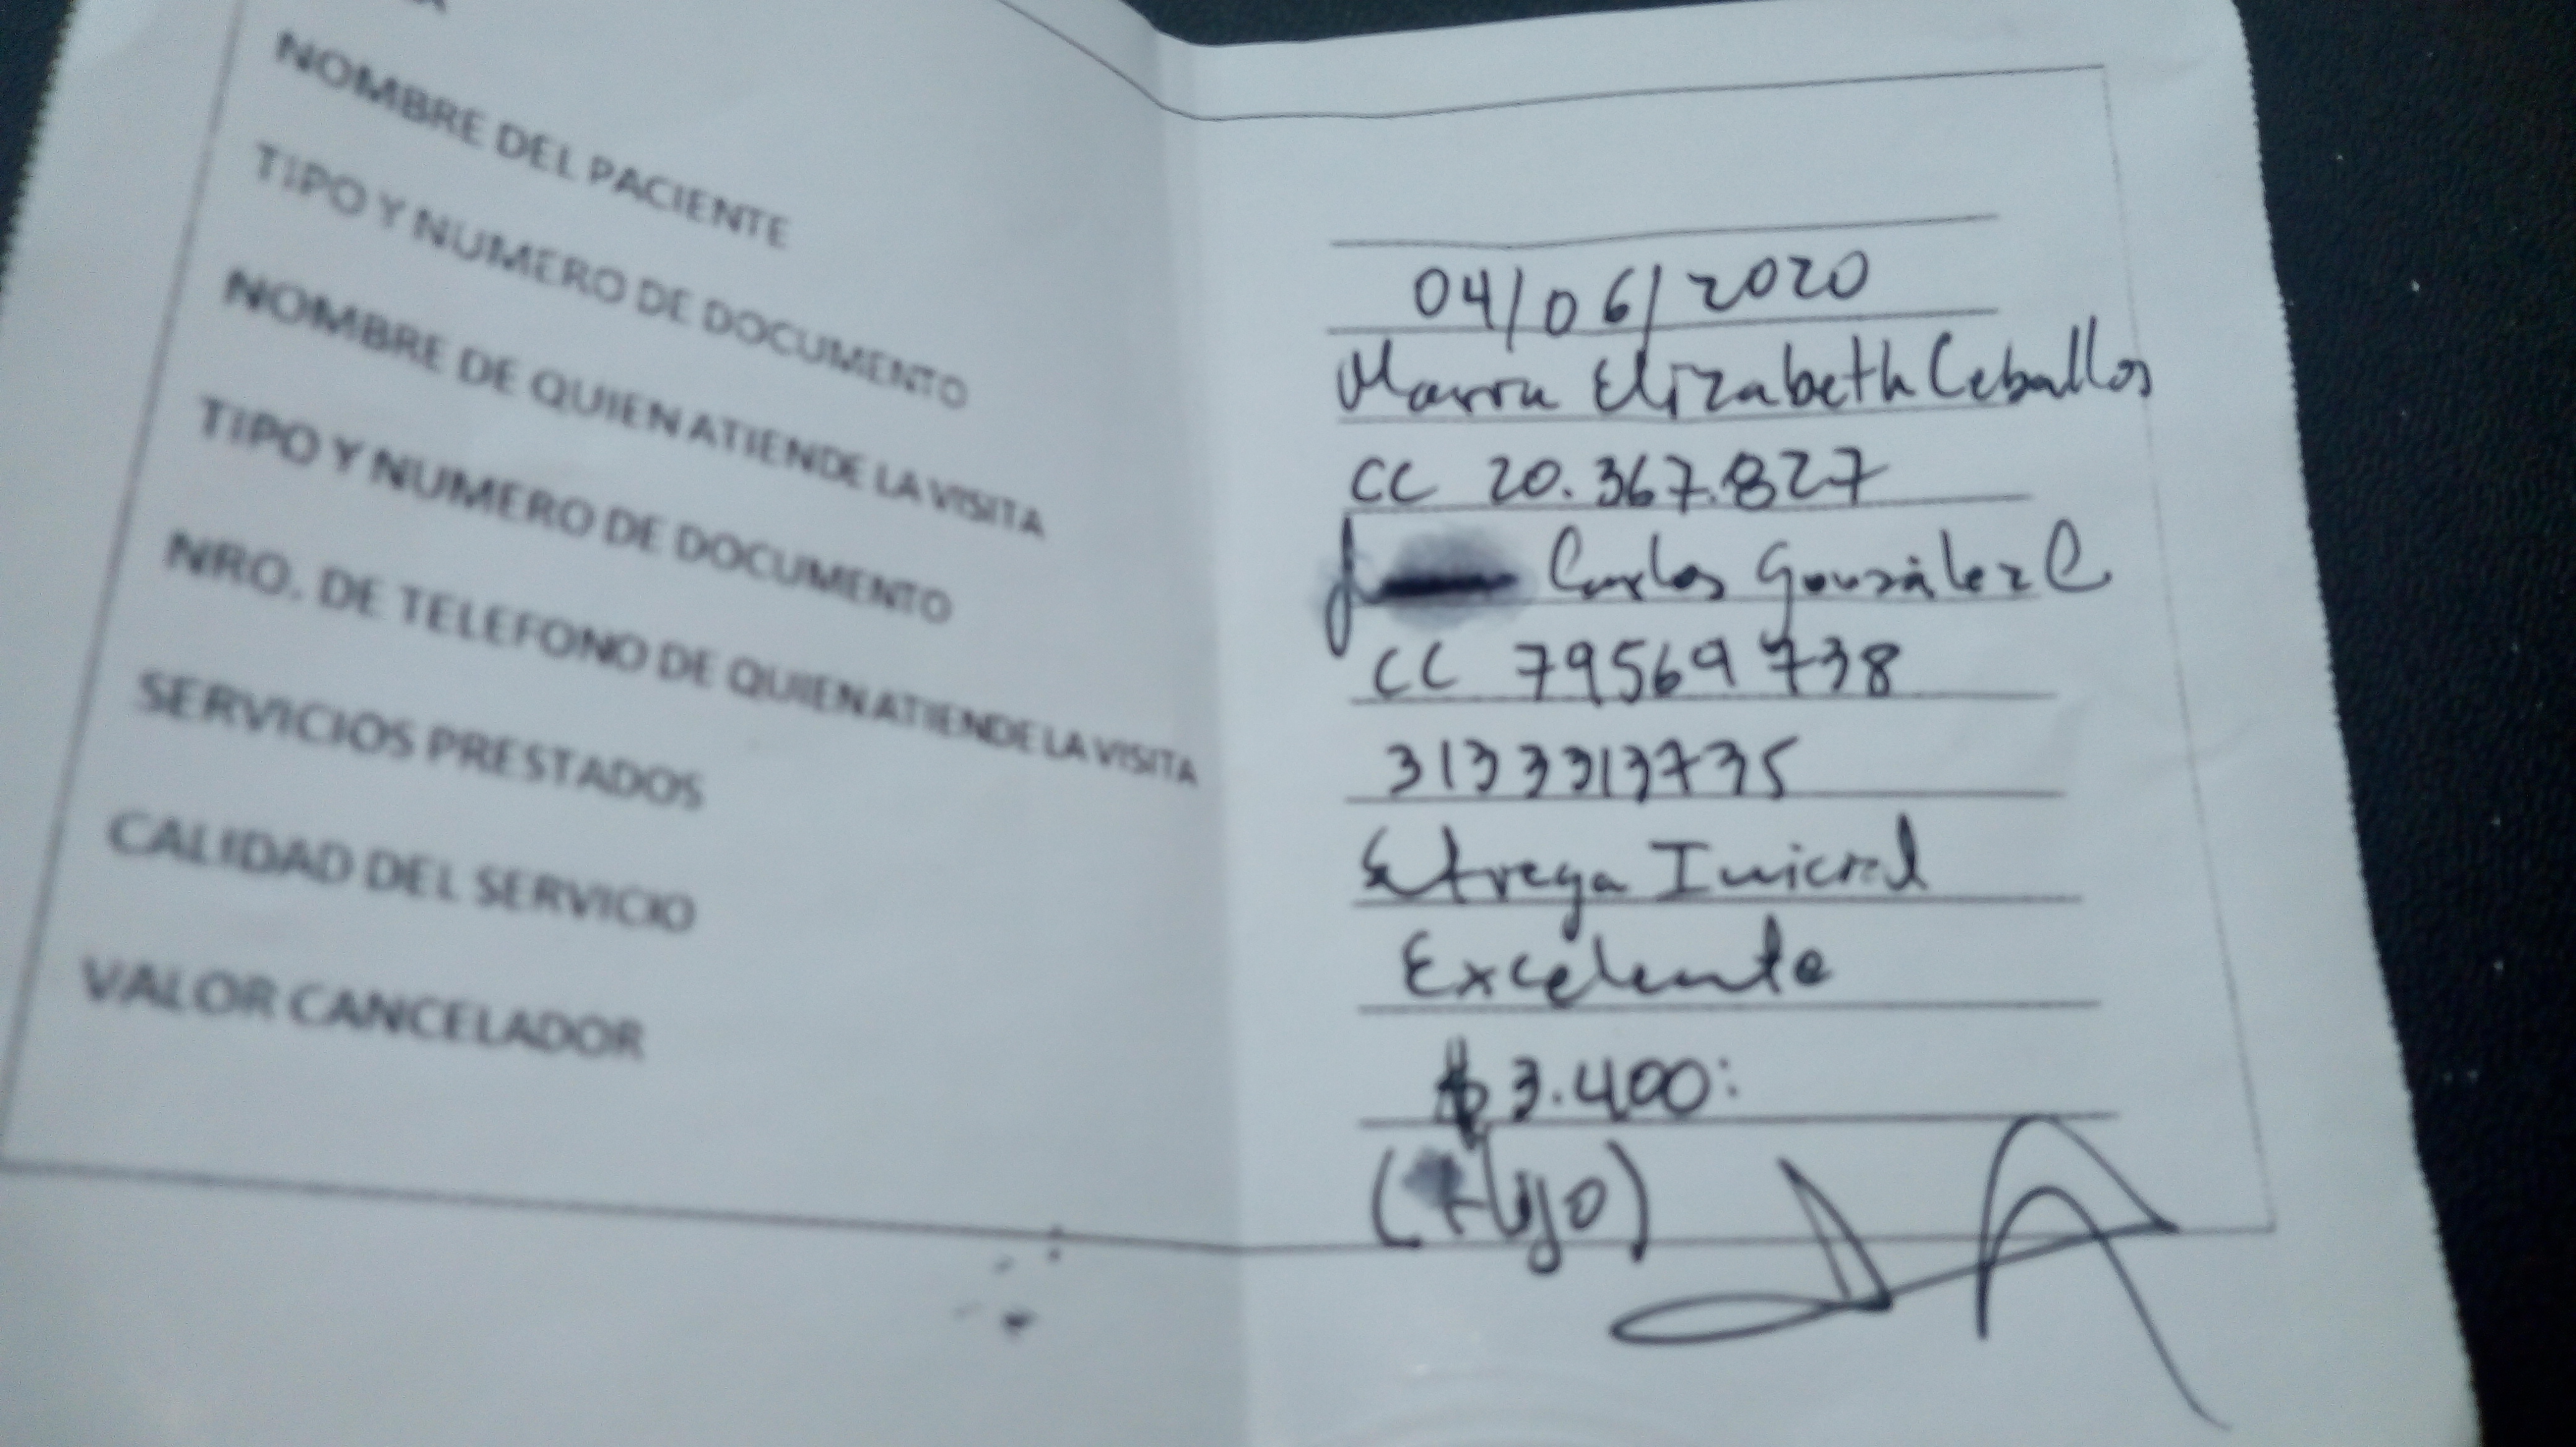 NOMBRE DEL PACIENTE
TIPO Y NUMERO DE DOCUMENTO
NOMBRE DE QUIEN ATIENDE LA VISITA
TIPO Y NUMERO DE DOCUMENTO
NRO. DE TELEFONO DE QUIEN ATIENDE LA VISITA
SERVICIOS PRESTADOS
CALIDAD DEL SERVICIO
VALOR CANCELADOR
04/06/2020
Maria Elizabeth Ceballos
CC 20.367.827
Carlos González C
CC 79569738
3133313735
Etrega Inicial
Excelente
$ 3.400:
(Hijo)